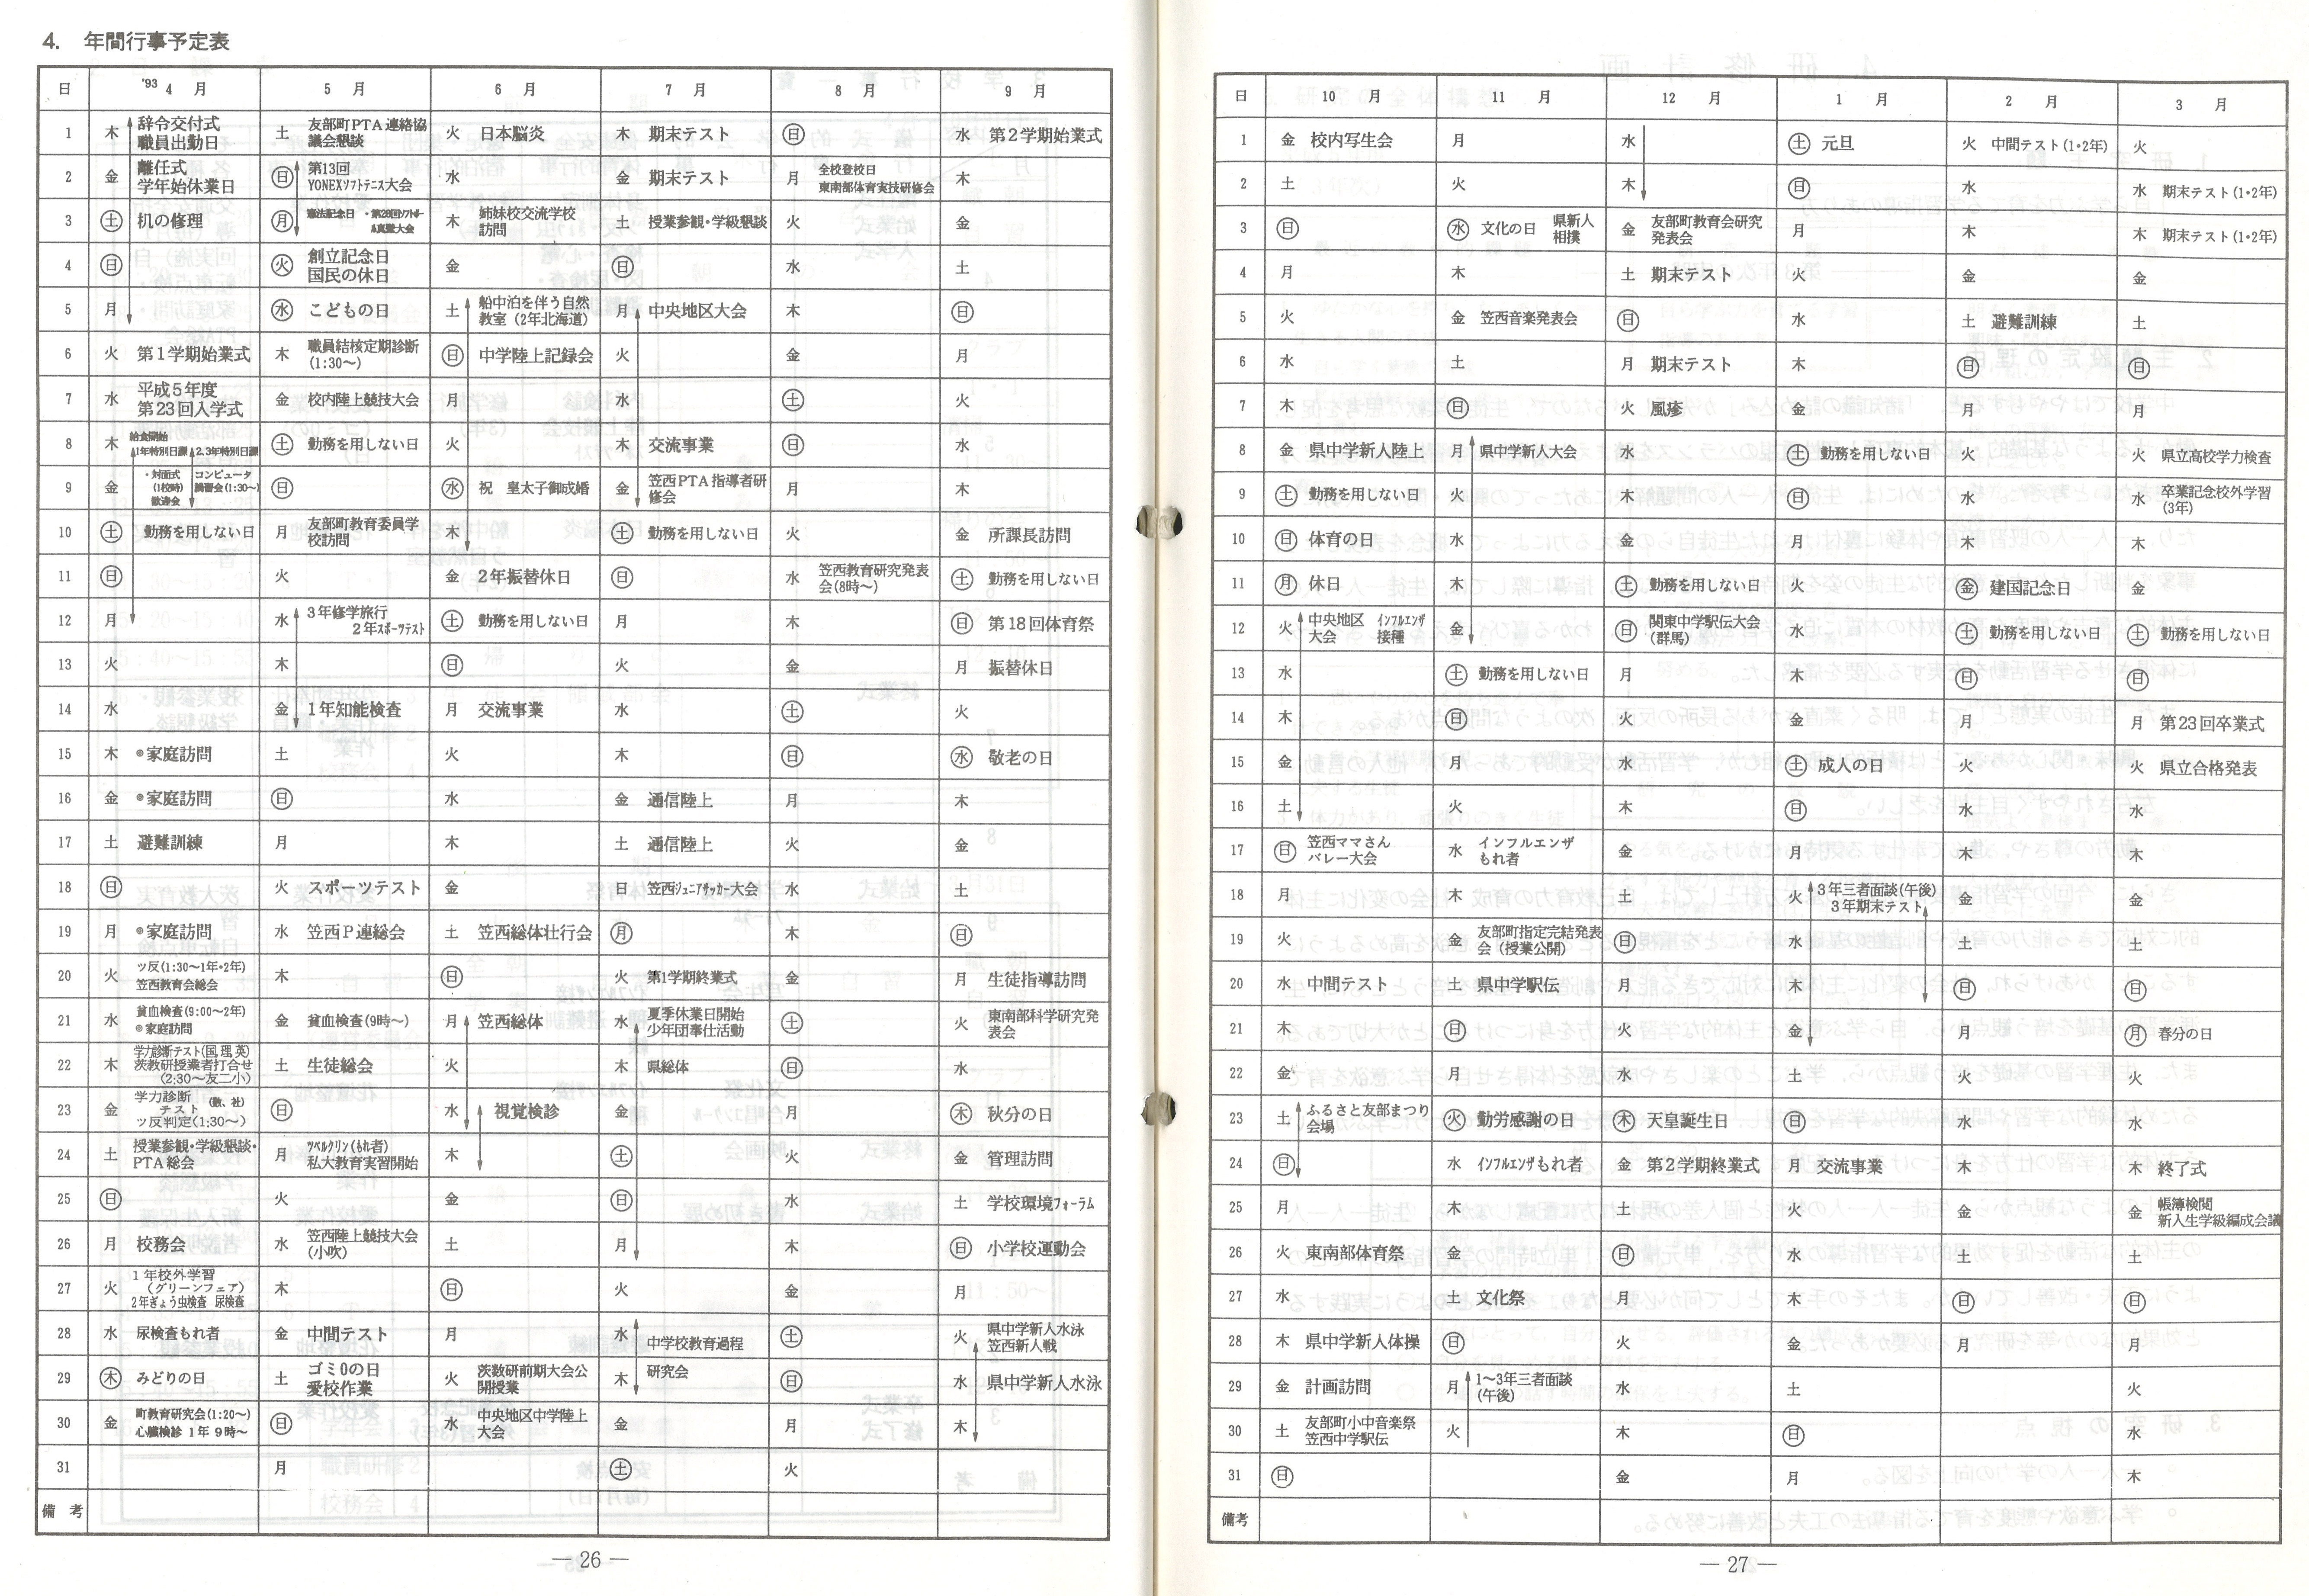 4. 年間行事予定表
日 '93 4 月 5 月 6 月 7 月 8 月 9 月
1 木 辞令交付式 職員出勤日 土 友部町PTA連絡協議会懇談 火 日本脳炎 木 期末テスト ㊐ 水 第2学期始業式
2 金 離任式 学年始休業日 ㊐ 第13回 YONEXソフトテニス大会 水 金 期末テスト 月 全校登校日 東南部体育実技研修会 木
3 ㊏ 机の修理 ㊊ 憲法記念日 木 姉妹校交流学校訪問 土 授業参観・学級懇談 火 金
4 ㊐ ㊋ 創立記念日 国民の休日 金 ㊐ 水 土
5 月 ㊌ こどもの日 土 船中泊を伴う自然教室(2年北海道) 月 中央地区大会 木 ㊐
6 火 第1学期始業式 木 職員結核定期診断(1:30〜) ㊐ 中学陸上記録会 火 金 月
7 水 平成5年度 第23回入学式 金 校内陸上競技大会 月 水 ㊏ 火
8 木 給食開始 1年特別日課 2.3年特別日課 ㊏ 勤務を用しない日 火 木 交流事業 ㊐ 水
9 金 ・対面式(1校時) 歓迎会 コンピュータ講習会(1:30〜) ㊐ ㊌ 祝 皇太子御成婚 金 笠西PTA指導者研修会 月 木
10 ㊏ 勤務を用しない日 月 友部町教育委員学校訪問 木 ㊏ 勤務を用しない日 火 金 所課長訪問
11 ㊐ 火 金 2年振替休日 ㊐ 水 笠西教育研究発表会(8時〜) ㊏ 勤務を用しない日
12 月 水 3年修学旅行 2年スポーツテスト ㊏ 勤務を用しない日 月 木 ㊐ 第18回体育祭
13 火 木 ㊐ 火 金 月 振替休日
14 水 金 1年知能検査 月 交流事業 水 ㊏ 火
15 木 ◎家庭訪問 土 火 木 ㊐ ㊌ 敬老の日
16 金 ◎家庭訪問 ㊐ 水 金 通信陸上 月 木
17 土 避難訓練 月 木 土 通信陸上 火 金
18 ㊐ 火 スポーツテスト 金 日 笠西ジュニアサッカー大会 水 土
19 月 ◎家庭訪問 水 笠西P連総会 土 笠西総体壮行会 ㊊ 木 ㊐
20 火 ツ反(1:30〜1年・2年) 笠西教育会総会 木 ㊐ 火 第1学期終業式 金 月 生徒指導訪問
21 水 貧血検査(9:00〜2年) ◎家庭訪問 金 貧血検査(9時〜) 月 笠西総体 水 夏季休業日開始 少年団奉仕活動 ㊏ 火 東南部科学研究発表会
22 木 学力診断テスト(国,理,英) 茨教研授業者打合せ(2;30〜友二小) 土 生徒総会 火 木 県総体 ㊐ 水
23 金 学力診断テスト(数、社) ツ反判定(1:30〜) ㊐ 水 視覚検診 金 月 ㊍ 秋分の日
24 土 授業参観・学級懇談・PTA総会 月 ツベルクリン(もれ者) 私大教育実習開始 木 ㊏ 火 金 管理訪問
25 ㊐ 火 金 ㊐ 水 土 学校環境フォーラム
26 月 校務会 水 笠西陸上競技大会(小吹) 土 月 木 ㊐ 小学校運動会
27 火 1年校外学習(グリーンフェア) 2年ぎょう虫検査 尿検査 木 ㊐ 火 金 月
28 水 尿検査もれ者 金 中間テスト 月 水 中学校教育過程 ㊏ 火 県中学新人水泳 笠西新人戦
29 ㊍ みどりの日 土 ゴミ0の日 愛校作業 火 茨数研前期大会公開授業 木 研究会 ㊐ 水 県中学新人水泳
30 金 町教育研究会(1:20〜) 心臓検診 1年 9時〜 ㊐ 水 中央地区中学陸上大会 金 月 木
31 月 ㊏ 火
備考
— 26 —
日 10 月 11 月 12 月 1 月 2 月 3 月
1 金 校内写生会 月 水 ㊏ 元旦 火 中間テスト(1・2年) 火
2 土 火 木 ㊐ 水 水 期末テスト(1・2年)
3 ㊐ ㊌ 文化の日 県新人相撲 金 友部町教育会研究発表会 月 木 木 期末テスト(1・2年)
4 月 木 土 期末テスト 火 金 金
5 火 金 笠西音楽発表会 ㊐ 水 土 避難訓練 土
6 水 土 月 期末テスト 木 ㊐ ㊐
7 木 ㊐ 火 風疹 金 月 月
8 金 県中学新人陸上 月 県中学新人大会 水 ㊏ 勤務を用しない日 火 火 県立高校学力検査
9 ㊏ 勤務を用しない日 火 木 ㊐ 水 水 卒業記念校外学習(3年)
10 ㊐ 体育の日 水 金 月 木 木
11 ㊊ 休日 木 ㊏ 勤務を用しない日 火 ㊎ 建国記念日 金
12 火 中央地区大会 インフルエンザ接種 金 ㊐ 関東中学駅伝大会(群馬) 水 ㊏ 勤務を用しない日 ㊏ 勤務を用しない日
13 水 ㊏ 勤務を用しない日 月 木 ㊐ ㊐
14 木 ㊐ 火 金 月 月 第23回卒業式
15 金 月 水 ㊏ 成人の日 火 火 県立合格発表
16 土 火 木 ㊐ 水 水
17 ㊐ 笠西ママさんバレー大会 水 インフルエンザもれ者 金 月 木 木
18 月 木 土 火 3年三者面談(午後) 3年期末テスト 金 金
19 火 金 友部町指定完結発表会(授業公開) ㊐ 水 土 土
20 水 中間テスト 土 県中学駅伝 月 木 ㊐ ㊐
21 木 ㊐ 火 金 月 ㊊ 春分の日
22 金 月 水 土 火 火
23 土 ふるさと友部まつり会場 ㊋ 動労感謝の日 ㊍ 天皇誕生日 ㊐ 水 水
24 ㊐ 水 インフルエンザもれ者 金 第2学期終業式 月 交流事業 木 木 終了式
25 月 木 土 火 金 金 帳簿検閲 新入生学級編成会議
26 火 東南部体育祭 金 ㊐ 水 土 土
27 水 土 文化祭 月 木 ㊐ ㊐
28 木 県中学新人体操 ㊐ 火 金 月 月
29 金 計画訪問 月 1〜3年三者面談(午後) 水 土 火
30 土 友部町小中音楽祭 笠西中学駅伝 火 木 ㊐ 水
31 ㊐ 金 月 木
備考
— 27 —